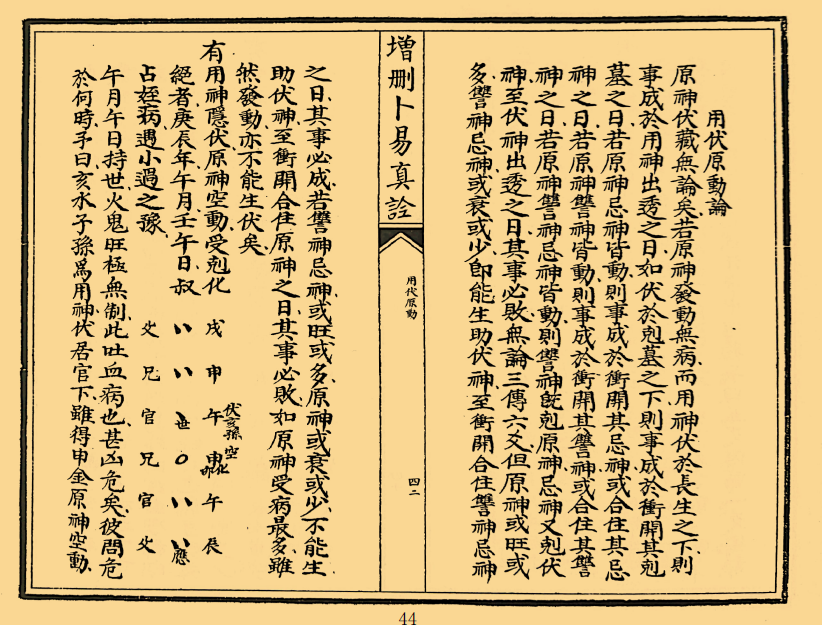 用伏原動論
原神伏藏無論矣若原神發動無病而用神伏於長生之下則
事成於用神出透之日如伏於剋墓之下則事成於衝開其剋
墓之日若原神忌神皆動則事成於衝開其忌神或合住其忌
神之日若原神讐神皆動則事成於衝開其讐神或合住其讐
神之日若原神讐神忌神皆動則讐神旣剋原神忌神又剋伏
神至伏神出透之日其事必敗無論三傳六爻但原神或旺或
多讐神忌神或衰或少卽能生助伏神至衝開合住讐神忌神
增删卜易真詮
用伏原動
四二
之日其事必成若讐神忌神或旺或多原神或衰或少不能生
助伏神至衝開合住原神之日其事必敗如原神受病最多雖
然發動亦不能生伏矣
有用神隱伏原神空動受剋化
絕者庚辰年午月壬午日叔
占姪病遇小過之豫
伏亥孫 空化卯
戌 申 午 申 午 辰
世 應
父 兄 官 兄 官 父
午月午日持世火鬼旺極無制此吐血病也甚凶危矣彼問危
於何時予曰亥水子孫爲用神伏居官下雖得申金原神空動
44